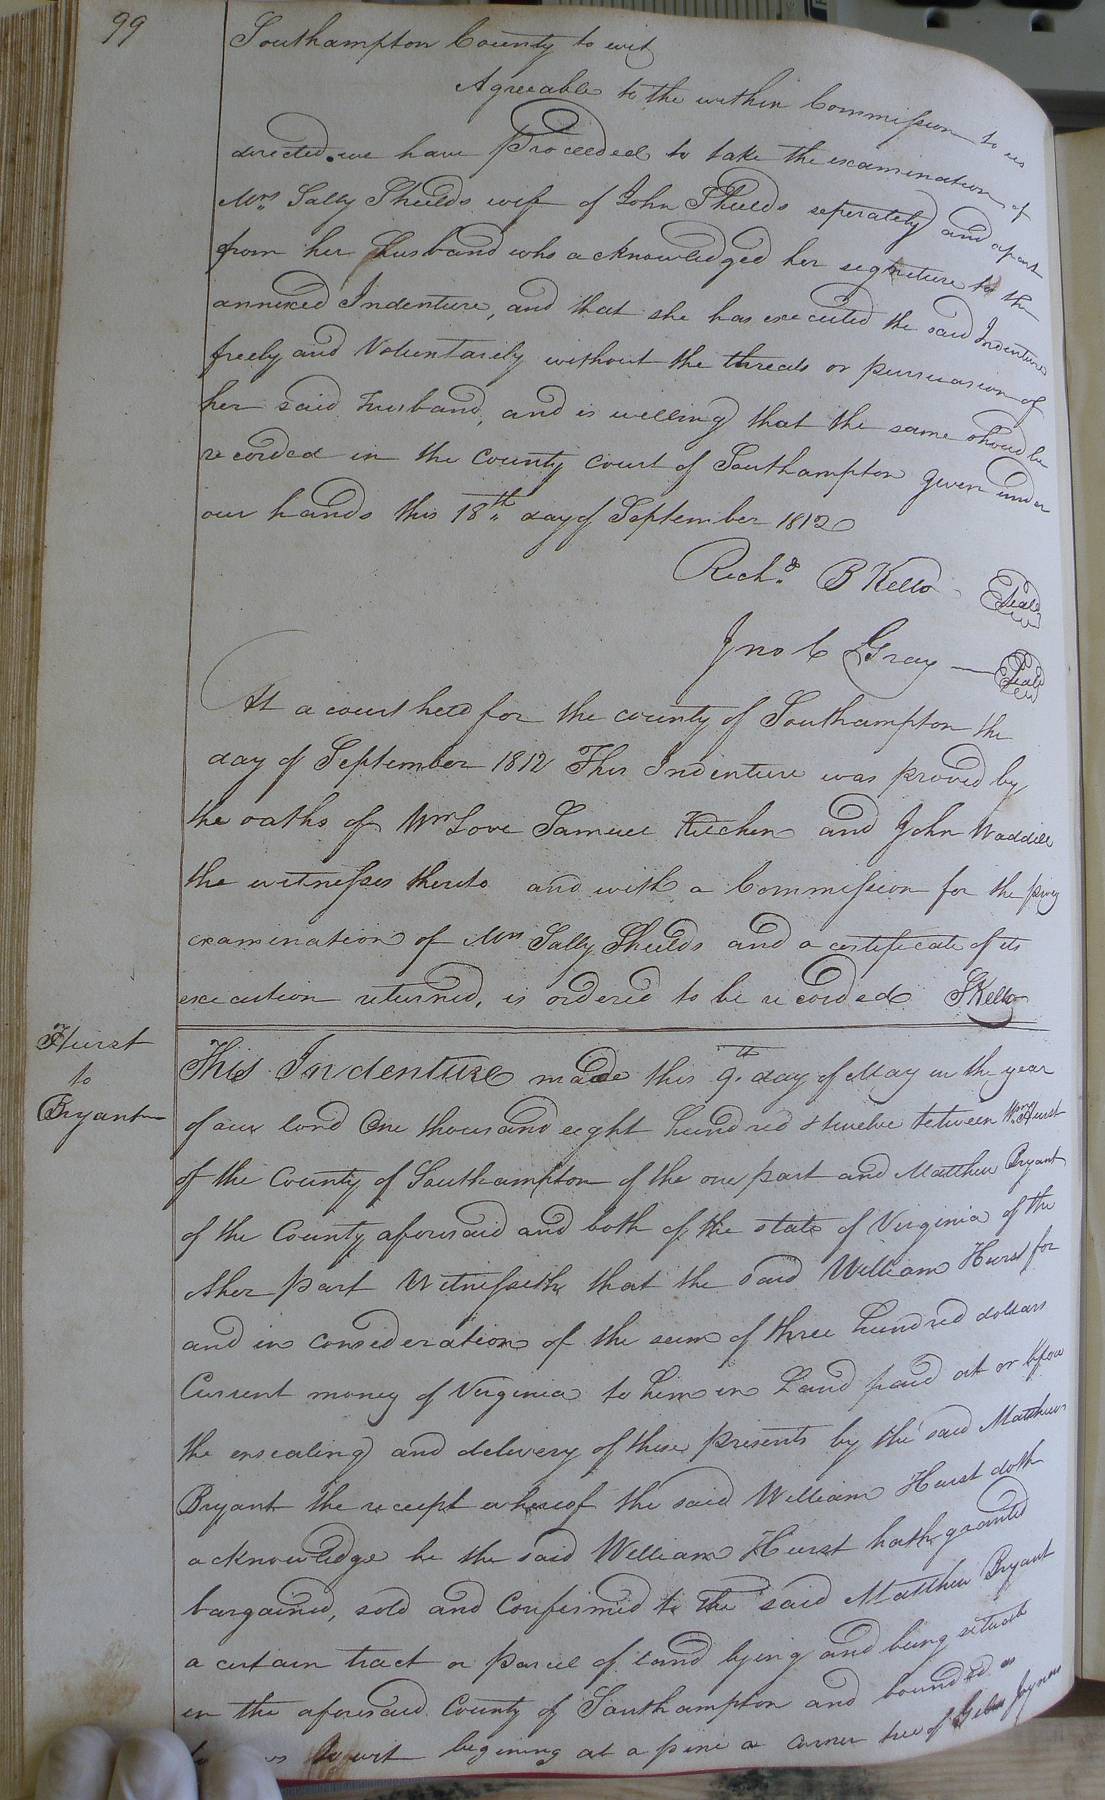 99
Southampton County to wit
Agreeable to the within Commission to us
directed we have Proceeded to take the examination of
Mrs. Sally Shields wife of John Shields seperately and apart
from her Husband who acknowledged her segnature to the
annexed Indenture, and that she has executed the said Indenture
freely and Voluntarely without the threats or pursuasion of
her said husband, and is willing that the same should be
recorded in the County Court of Southampton given under
our hands this 18th day of September 1812
Richd. B Kello Seal
Jno C Gray Seal
At a court held for the county of Southampton the
day of September 1812 This Indenture was proved by
the oaths of Wm Love Samuel Kitchen and John Waddill
the witnesses thereto and with a Commission for the privy
examination of Mrs Sally Shields and a certificate of its
execution returned, is ordered to be recorded SKello
Hurst
to
Bryant
This Indenture made this 9th day of May in the year
of our lord One thousand eight hundred & twelve between Wm. Hurst
of the County of Southampton of the one part and Matthew Bryant
of the County aforesaid and both of the state of Virginia of the
other part Witnesseth that the said William Hurst for
and in consideration of the sum of three hundred dollars
Current money of Virginia to him in hand paid at or before
the ensealing and delivery of these presents by the said Matthew
Bryant the receipt whereof the said William Hurst doth
acknowledge he the said William Hurst hath granted
bargained, sold and Confirmed to the said Matthew Bryant
a certain tract or parcel of land lying and being situate
in the aforesaid County of Southampton and bounded as
to wit begining at a pine a corner tree of Joyners